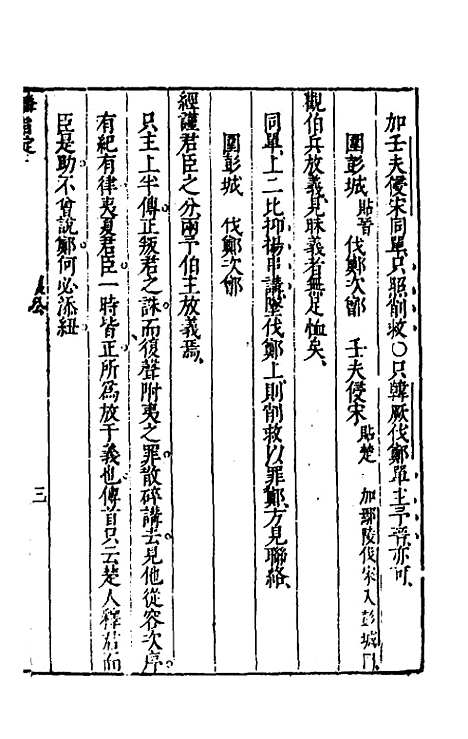 加壬夫侵宋同單只照削救〇只韓厥伐鄭單主予晉亦可
圍彭城貼晉 伐鄭次鄫 壬夫侵宋貼楚 加鄢陵伐宋入彭城同
觀伯兵放義見昧義者無足恤矣
同單上二比抑揚串講墜伐鄭上則削救以罪鄭方見聯絡
圍彭城 伐鄭次鄫
經護君臣之分兩予伯主放義焉
只主上半傳正叛君之誅而復聲附夷之罪散碎講去見他從容次序
有紀有律夷夏君臣一時皆正所為放于義也傳首只云楚人釋君而
臣是助不曾說鄭何必添紐
三